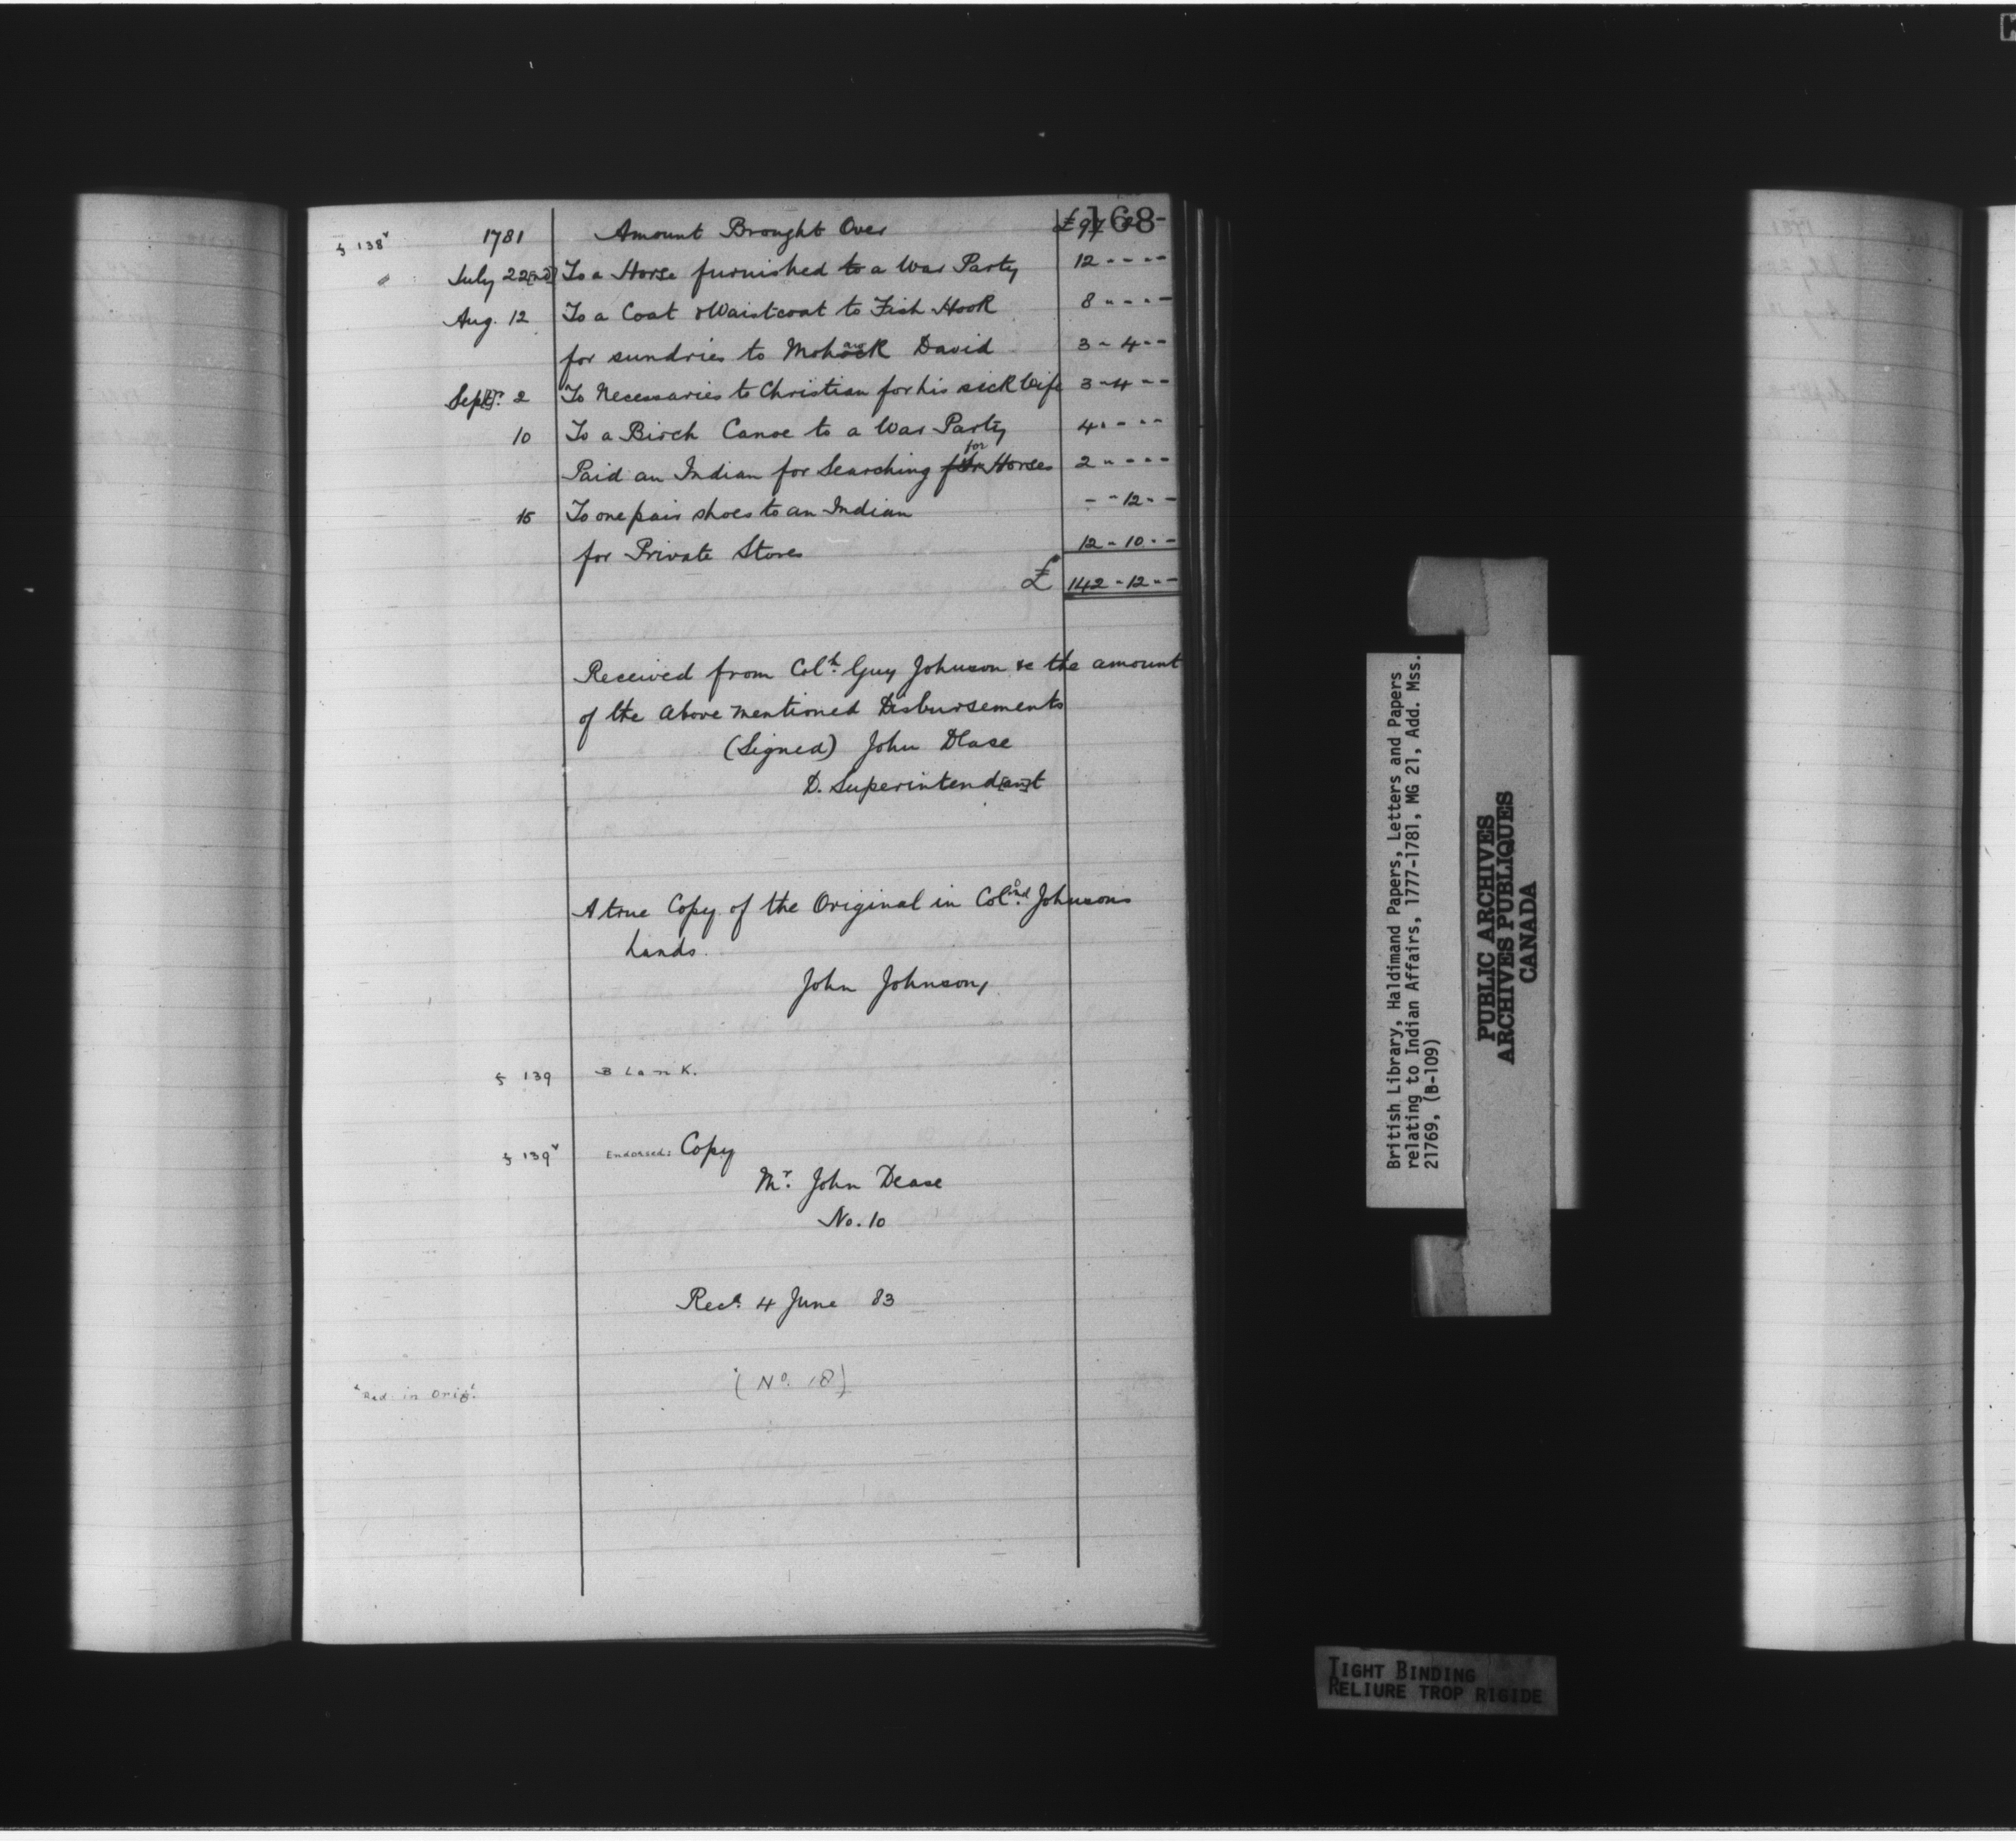 168
f 138v 1781 Amount Brought Over £97
" July 22[nd] To a Horse furnished to a War Party 12 - - - -
Aug. 12 To a Coat & Waistcoat to Fish Hook 8 - - - -
for sundries to Mohawk David 3 - 4 - -
Sept[r]. 2 To Necessaries to Christian for his sick Wife 3 - 4 - -
10 To a Birch Canoe to a War Party 4 - - - -
for
Paid an Indian for Searching for Horses 2 - - - -
15 To one pair shoes to an Indian - - 12 - -
for Private Stores 12 - 10 - -
£ 142 - 12 - -
Received from Coll. Guy Johnson &c the amount
of the Above mentioned Disbursements
(Signed) John Dease
D. Superintend[an]t
A true Copy of the Original in Col. Johnsons
hands.
John Johnson,
f 139 Blank.
f 139v Endorsed: Copy
Mr. John Dease
No. 10
Recd. 4 June 83
"Red in Orig.l (No. 18)
British Library, Haldimand Papers, Letters and Papers
relating to Indian Affairs, 1777-1781, MG 21, Add. Mss.
21769, (B-109)
PUBLIC ARCHIVES
ARCHIVES PUBLIQUES
CANADA
TIGHT BINDING
RELIURE TROP RIGIDE